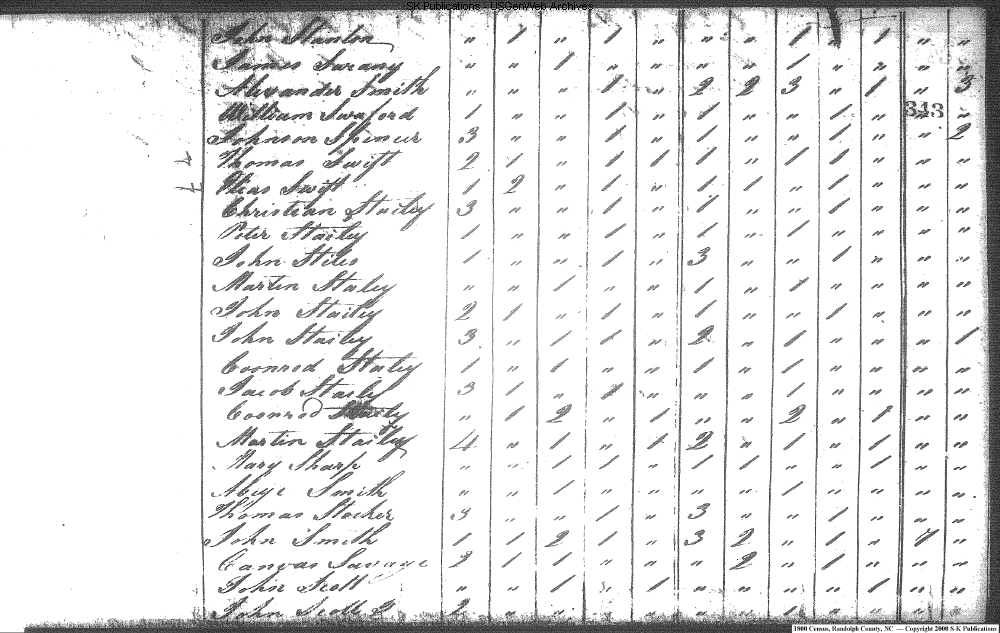 SK Publications - USGenWeb Archives
John Stanton " 1 " 1 " " " 1 " 1 " "
James Swany " " 1 " " " " 1 " " " "
Alexander Smith " " " 1 " 2 2 3 " 1 " 3
William Swaford 1 " " 1 " 1 " " 1 " " "
343
Johnson Spencer 3 " " 1 " 1 " " 1 " " 2
Thomas Swift 2 1 " 1 1 1 " 1 1 " " "
Elias Swift 1 2 " 1 " 1 1 " 1 " " "
Christian Stailey 3 " " 1 " 1 " " 1 " " "
Peter Stailey 1 " " 1 " 1 " 1 " " " "
John Stiles 1 " " 1 " 3 " " 1 " " "
Martin Staley " " 1 " " 1 " 1 " " " "
John Stailey 2 1 " 1 " 1 " " 1 " " "
John Stailey 3 " 1 1 " 2 " 1 " " " 1
Coonrod Staley 1 " 1 " " 1 " 1 " " " "
Jacob Staily 3 1 " 1 " " " 1 " " " "
Coonrod " 1 2 " 1 " " 2 " 1 " "
Martin Stailey 4 " 1 " 1 2 " 1 " 1 " "
Mary Sharp " " 1 1 " 1 1 " " 1 " "
Smith " " 1 " " " " 1 " " " "
Thomas Stocker 3 " " 1 " 3 " " 1 " " "
John Smith 1 1 2 1 " 3 2 " 1 " 7 "
Canvas Savage 2 1 1 " " " 2 " 1 " " "
John Scott " " 1 " 1 " " " " 1 " "
John Scott 2 2 " " " " " " 1 " " " "
1800 Census, Randolph County, NC — Copyright 2000 S-K Publications